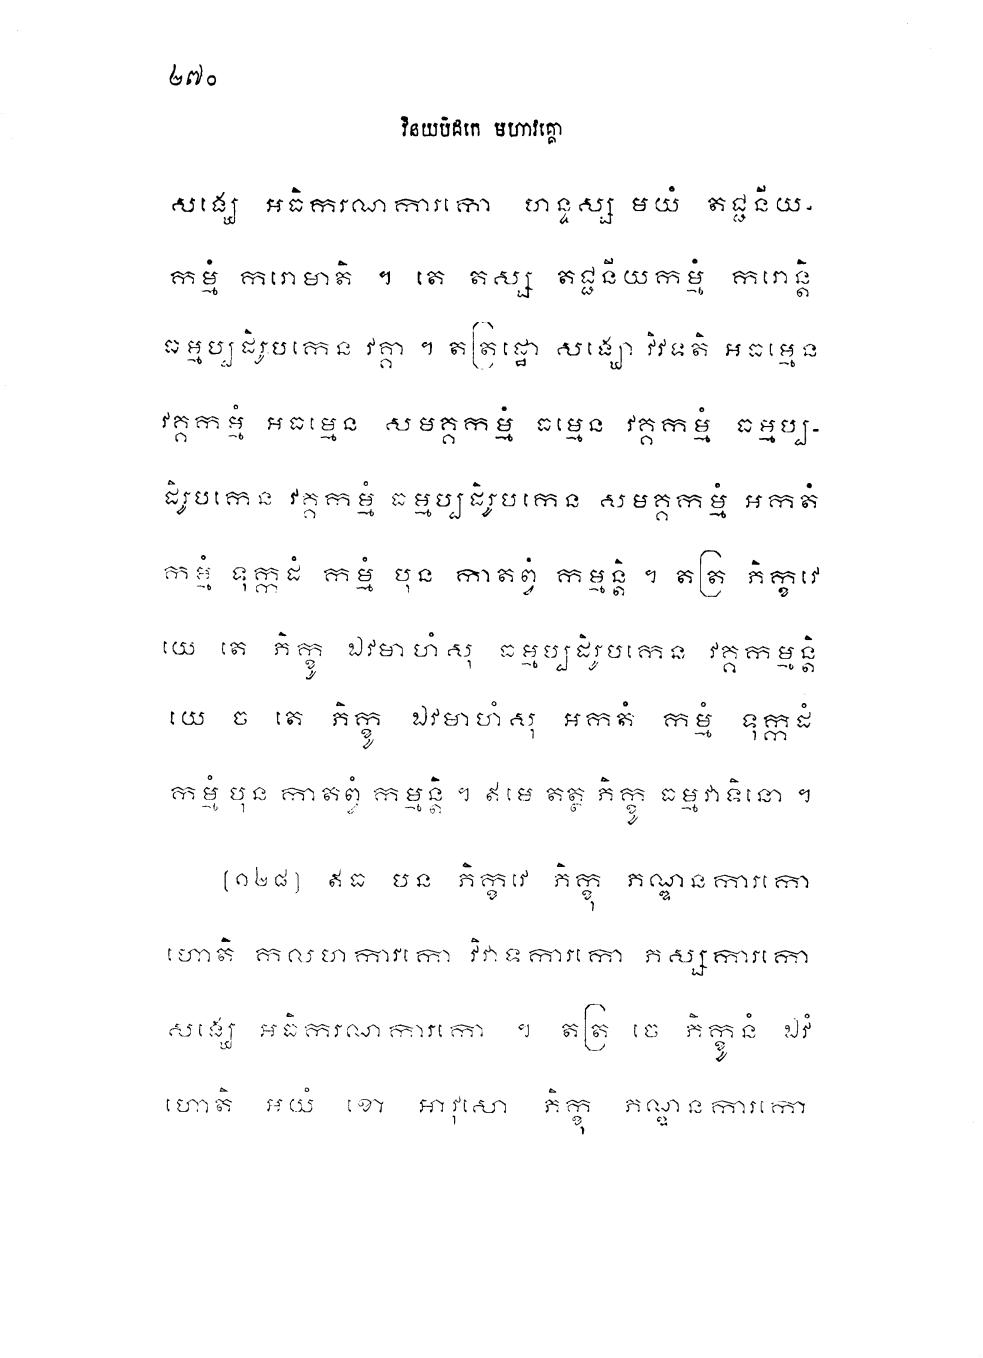 ២៧០
វិនយបិដកេ មហាវគ្គោ
សង្ឃេ អធិករណការកោ ហន្ទស្ស មយំ តជ្ជនីយ-
កម្មំ ករោមាតិ ។ តេ តស្ស តជ្ជនីយកម្មំ ករោន្តិ
ធម្មប្បដិរូបកេន វគ្គា ។ តត្រដ្ឋោ សង្ឃោ វិវទតិ អធម្មេន
វគ្គកម្មំ អធម្មេន សមគ្គកម្មំ ធម្មេន វគ្គកម្មំ ធម្មប្ប-
ដិរូបកេន វគ្គកម្មំ ធម្មប្បដិរូបកេន សមគ្គកម្មំ អកតំ
កម្មំ ទុក្កដំ កម្មំ បុន កាតព្វំ កម្មន្តិ ។ តត្រ ភិក្ខវេ
យេ តេ ភិក្ខូ ឯវមាហំសុ ធម្មប្បដិរូបកេន វគ្គកម្មន្តិ
យេ ច តេ ភិក្ខូ ឯវមាហំសុ អកតំ កម្មំ ទុក្កដំ
កម្មំ បុន កាតព្វំ កម្មន្តិ ។ ឥមេ តត្ថ ភិក្ខូ ធម្មវាទិនោ ។
(១២៨) ឥធ បន ភិក្ខវេ ភិក្ខុ ភណ្ឌនការកោ
ហោតិ កលហការកោ វិវាទការកោ ភស្សការកោ
សង្ឃេ អធិករណការកោ ។ តត្រ ចេ ភិក្ខូនំ ឯវំ
ហោតិ អយំ ខោ អាវុសោ ភិក្ខុ ភណ្ឌនការកោ